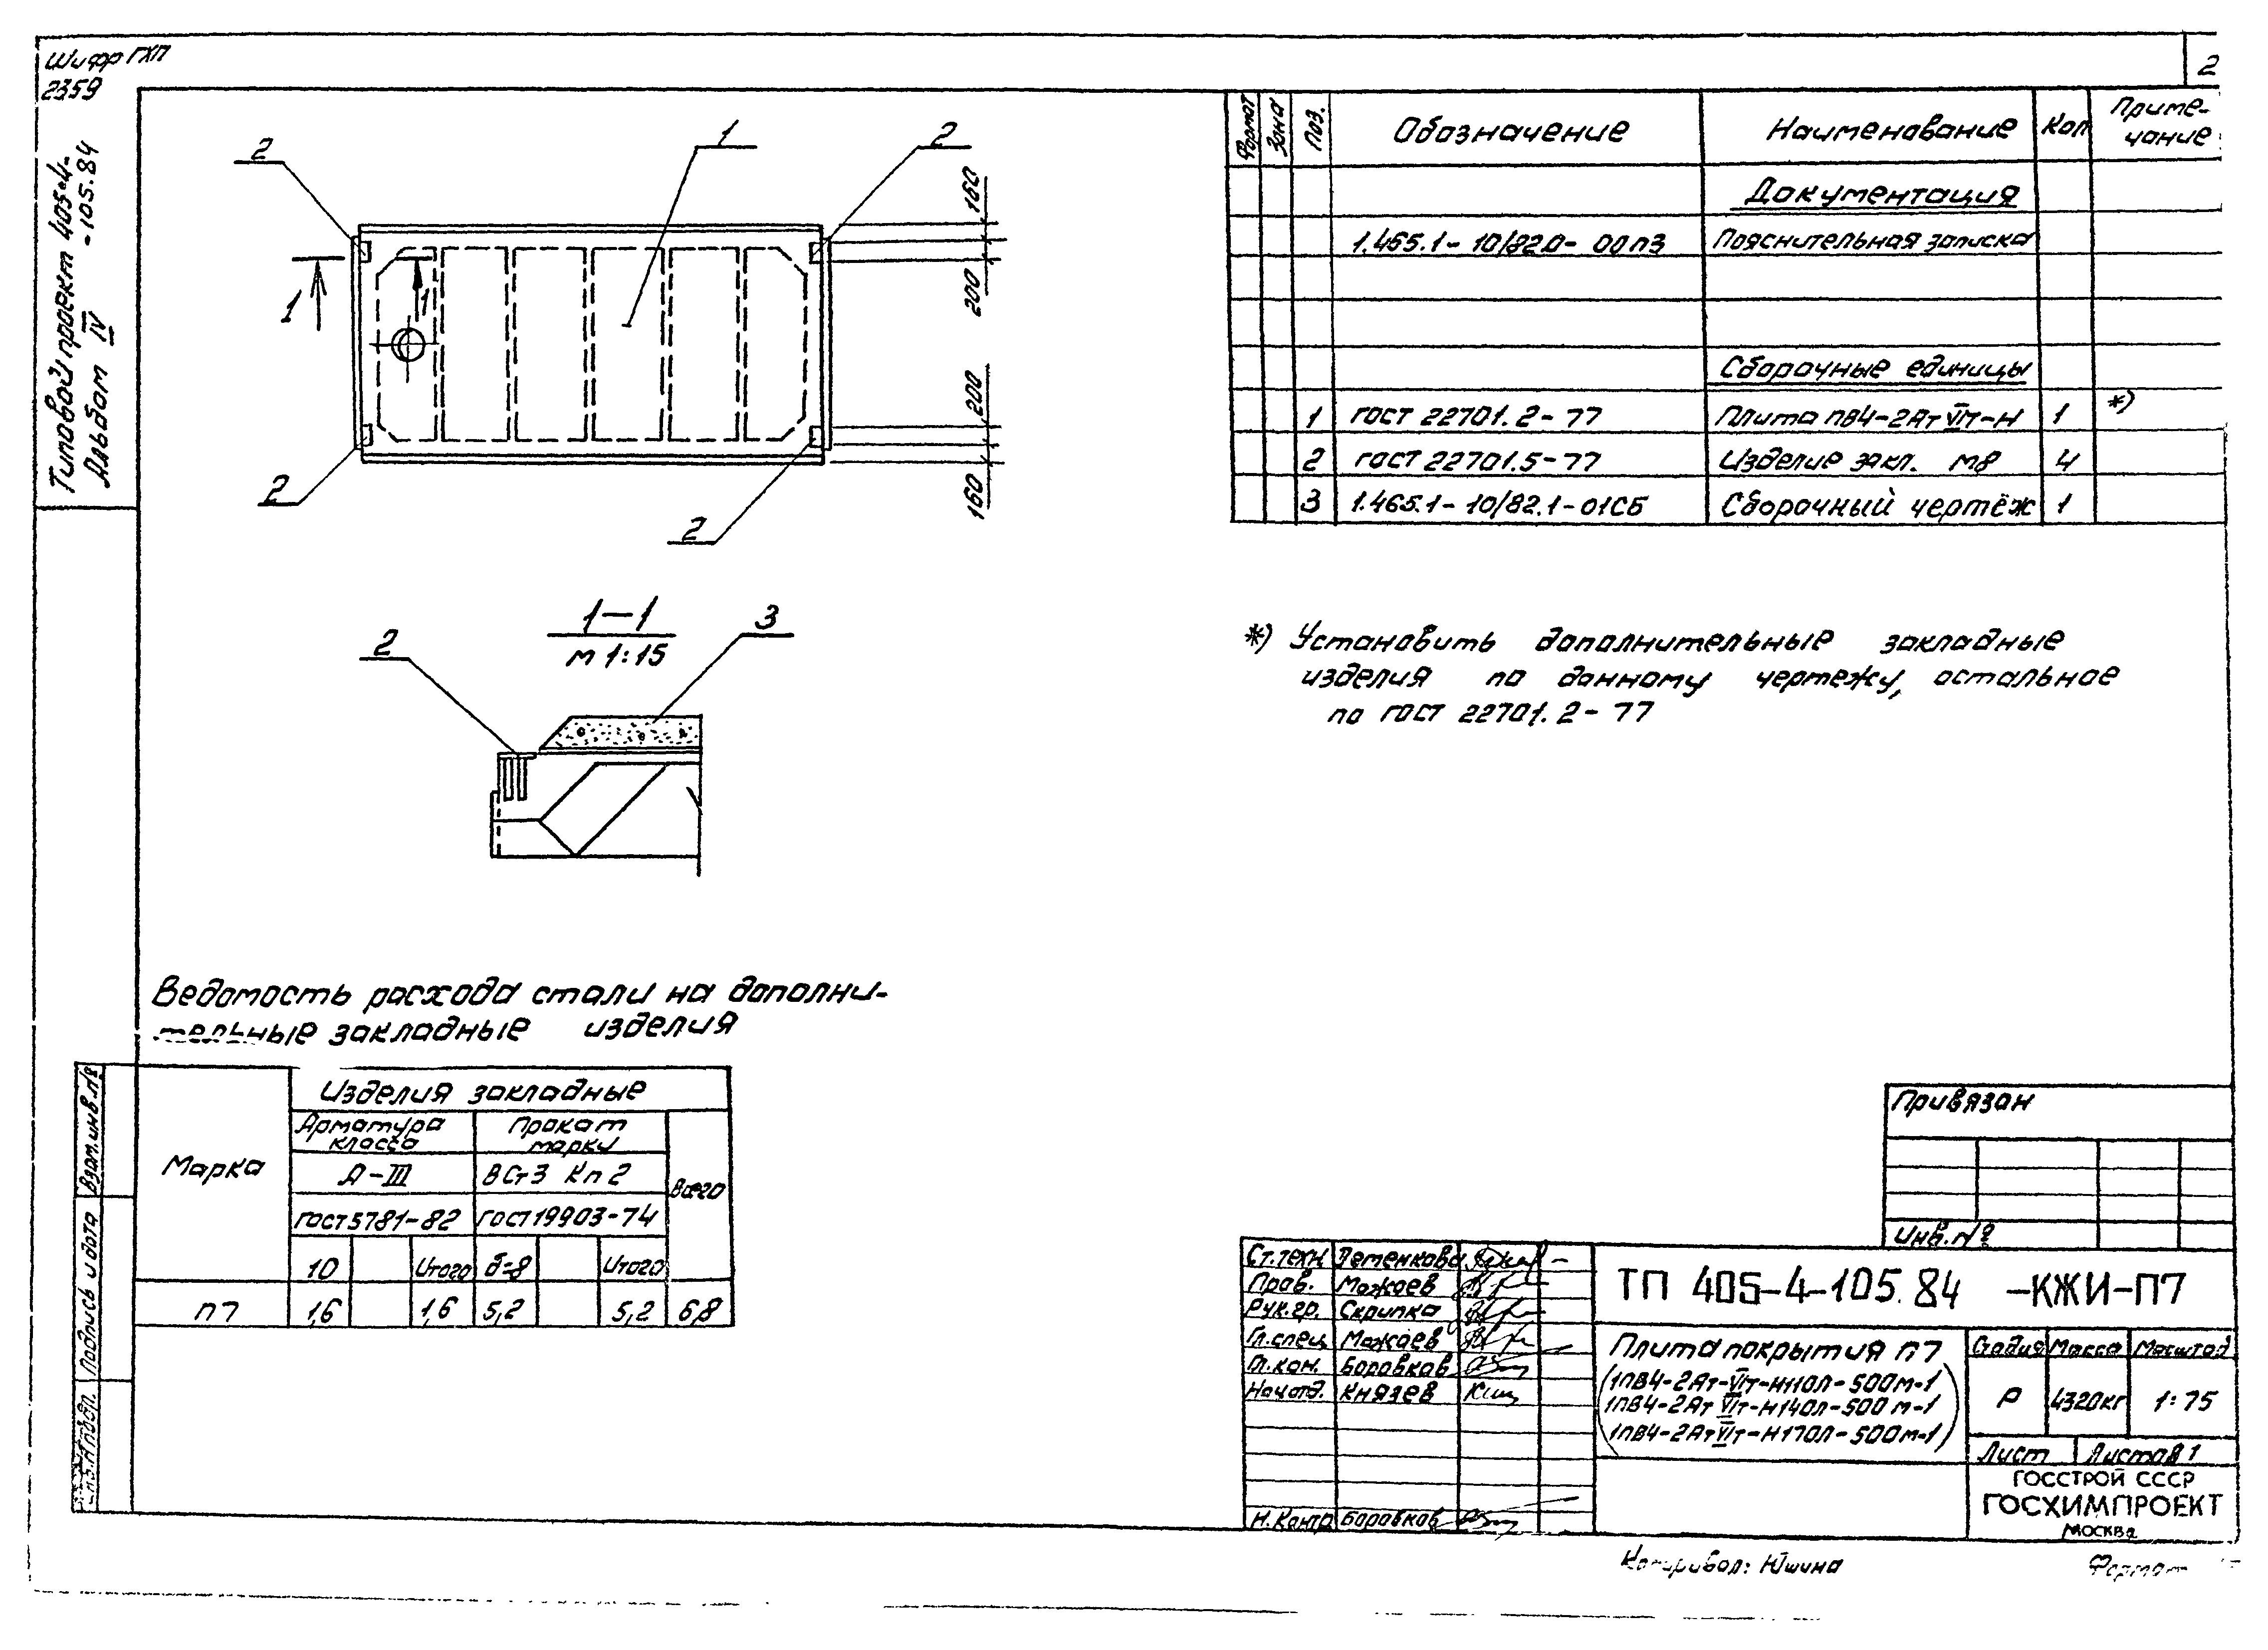 Шифр ГХП
2359
2
Типовой проект 405-4-
-105.84
Альбом IV
2
1
2
160
200
1
1
200
160
2
2
Формат Зона Поз. Обозначение Наименование Кол Приме-
чание
Документация
1.465.1-10/82.0-00ПЗ Пояснительная записка
Сборочные единицы
1 ГОСТ 22701.2-77 Плита ПВ4-2АтVIт-Н 1 *)
2 ГОСТ 22701.5-77 Изделие закл. М8 4
3 1.465.1-10/82.1-01СБ Сборочный чертёж 1
1-1
М 1:15
2
3
*) Установить дополнительные закладные
изделия по данному чертежу, остальное
по ГОСТ 22701.2-77
Ведомость расхода стали на дополни-
тельные закладные изделия
Марка Изделия закладные
Арматура
класса
Прокат
марки
Всего
А-III ВСт3 Кп2
ГОСТ 5781-82 ГОСТ 19903-74
10 Итого δ=8 Итого
П7 1,6 1,6 5,2 5,2 6,8
Взам.инв.№
Подпись и дата
Привязан
Инв.№
Ст.техн.
Пров. Можаев
Рук.гр. Скрипка
Гл.спец. Можаев
Гл.кон. Боровков
Нач.отд. Князев
Н.контр. Боровков
ТП 405-4-105.84 -КЖИ-П7
Плита покрытия П7
(1ПВ4-2Ат-VIт-Н110Л-500м-1
1ПВ4-2АтVIт-Н140Л-500м-1
1ПВ4-2АтVIт-Н170Л-500м-1)
Стадия Масса Масштаб
Р 4320кг 1:75
Лист Листов 1
ГОССТРОЙ СССР
ГОСХИМПРОЕКТ
Москва
Копировал: Юшина
Формат